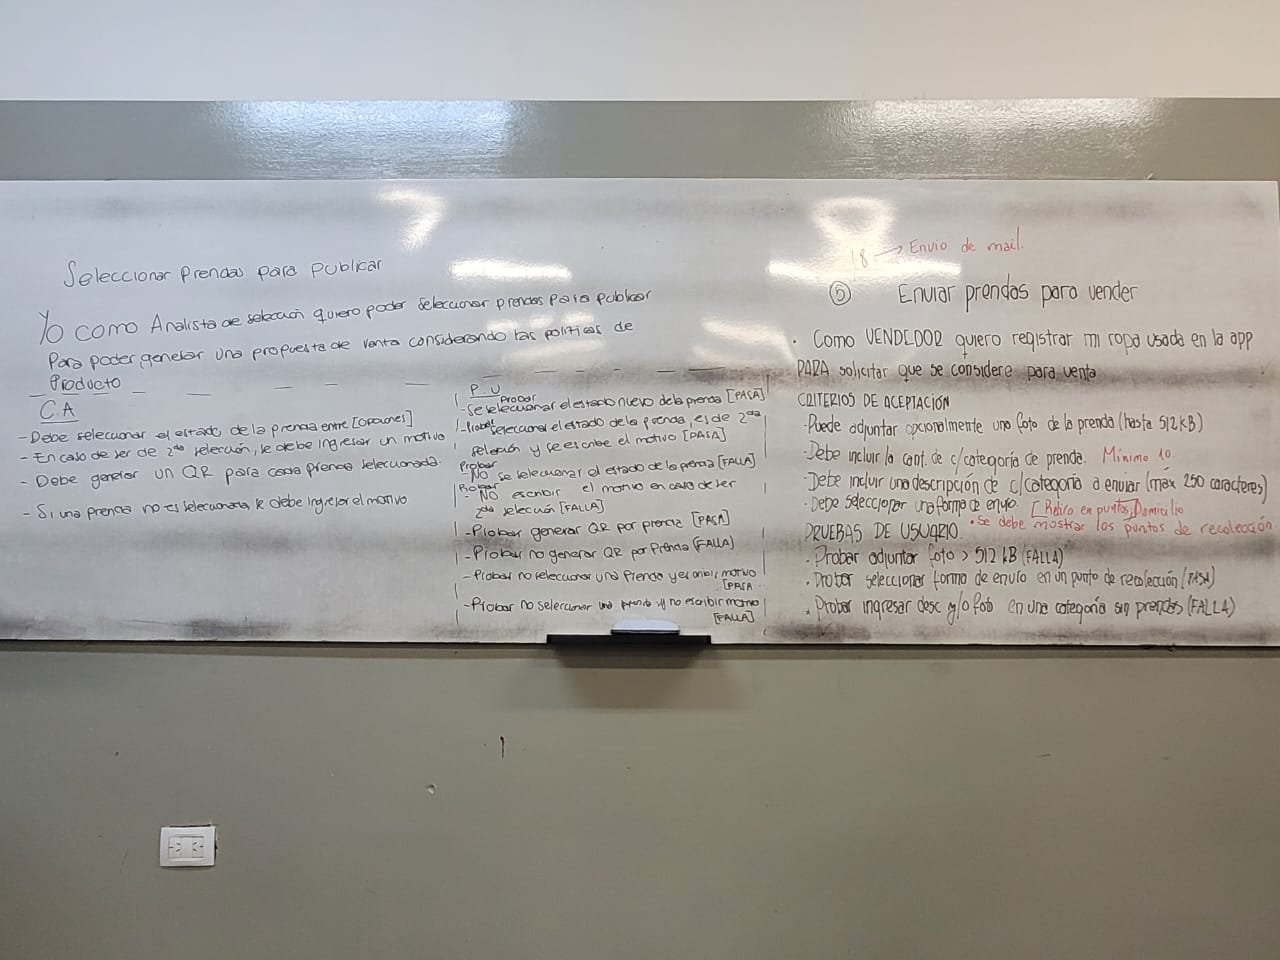 Seleccionar prendas para publicar
Yo como Analista de selección quiero poder seleccionar prendas para publicar
Para poder generar una propuesta de venta considerando las políticas de
Producto
C.A
- Debe seleccionar el estado de la prenda entre [opciones]
- En caso de ser de 2da selección, le debe ingresar un motivo
- Debe generar un QR para cada prenda seleccionada.
- Si una prenda no es seleccionada, le debe ingresar el motivo
P.U
Probar
- Se seleccionar el estado nuevo de la prenda [PASA]
- Probar seleccionar el estado de la prenda, es de 2da
selección y se escribe el motivo [PASA]
Probar
- No se seleccionar el estado de la prenda [FALLA]
Probar
- No escribir el motivo en caso de ser
2da selección [FALLA]
- Probar generar QR por prenda [PASA]
- Probar no generar QR por Prenda (FALLA)
- Probar no seleccionar una Prenda y escribir motivo
[PASA
- Probar no seleccionar una prenda y no escribir motivo
[FALLA]
8 → Envio de mail.
⑤ Enviar prendas para vender
• Como VENDEDOR quiero registrar mi ropa usada en la app
PARA solicitar que se considere para venta
CRITERIOS DE ACEPTACIÓN
- Puede adjuntar opcionalmente una foto de la prenda (hasta 512 kB)
- Debe incluir la cant. de c/categoría de prenda. Mínimo 10
- Debe incluir una descripción de c/categoría a enviar (máx 250 caracteres)
- Debe seleccionar una forma de envío. [Retiro en puntos, Domicilio
PRUEBAS DE USUARIO • Se debe mostrar los puntos de recolección
• Probar adjuntar foto > 512 kB (FALLA)
• Probar seleccionar forma de envío en un punto de recolección (PASA)
• Probar ingresar desc y/o foto en una categoría sin prendas (FALLA)